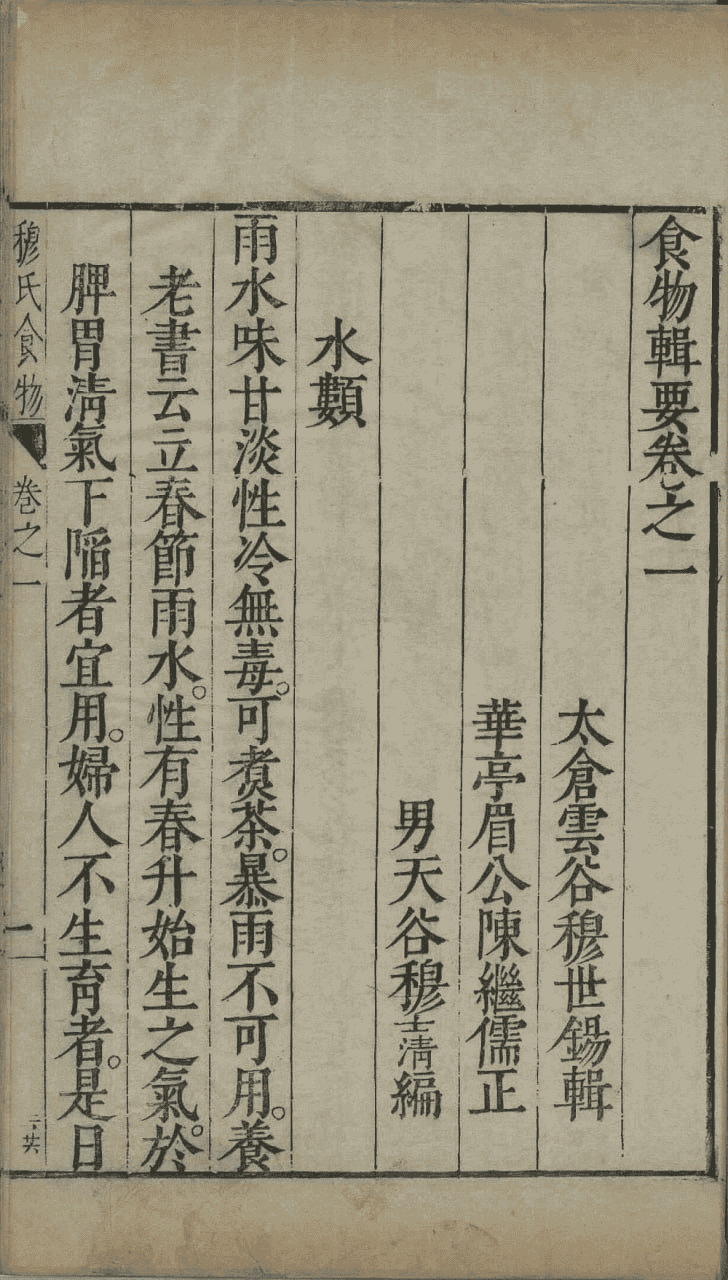 食物輯要卷之一
太倉雲谷穆世錫輯
華亭眉公陳繼儒正
男天谷穆士清編
水類
雨水味甘淡性冷無毒。可煑茶。暴雨不可用。養
老書云立春節雨水。性有春升始生之氣。於
脾胃清氣下陷者宜用。婦人不生育者。是日
穆氏食物 卷之一 一